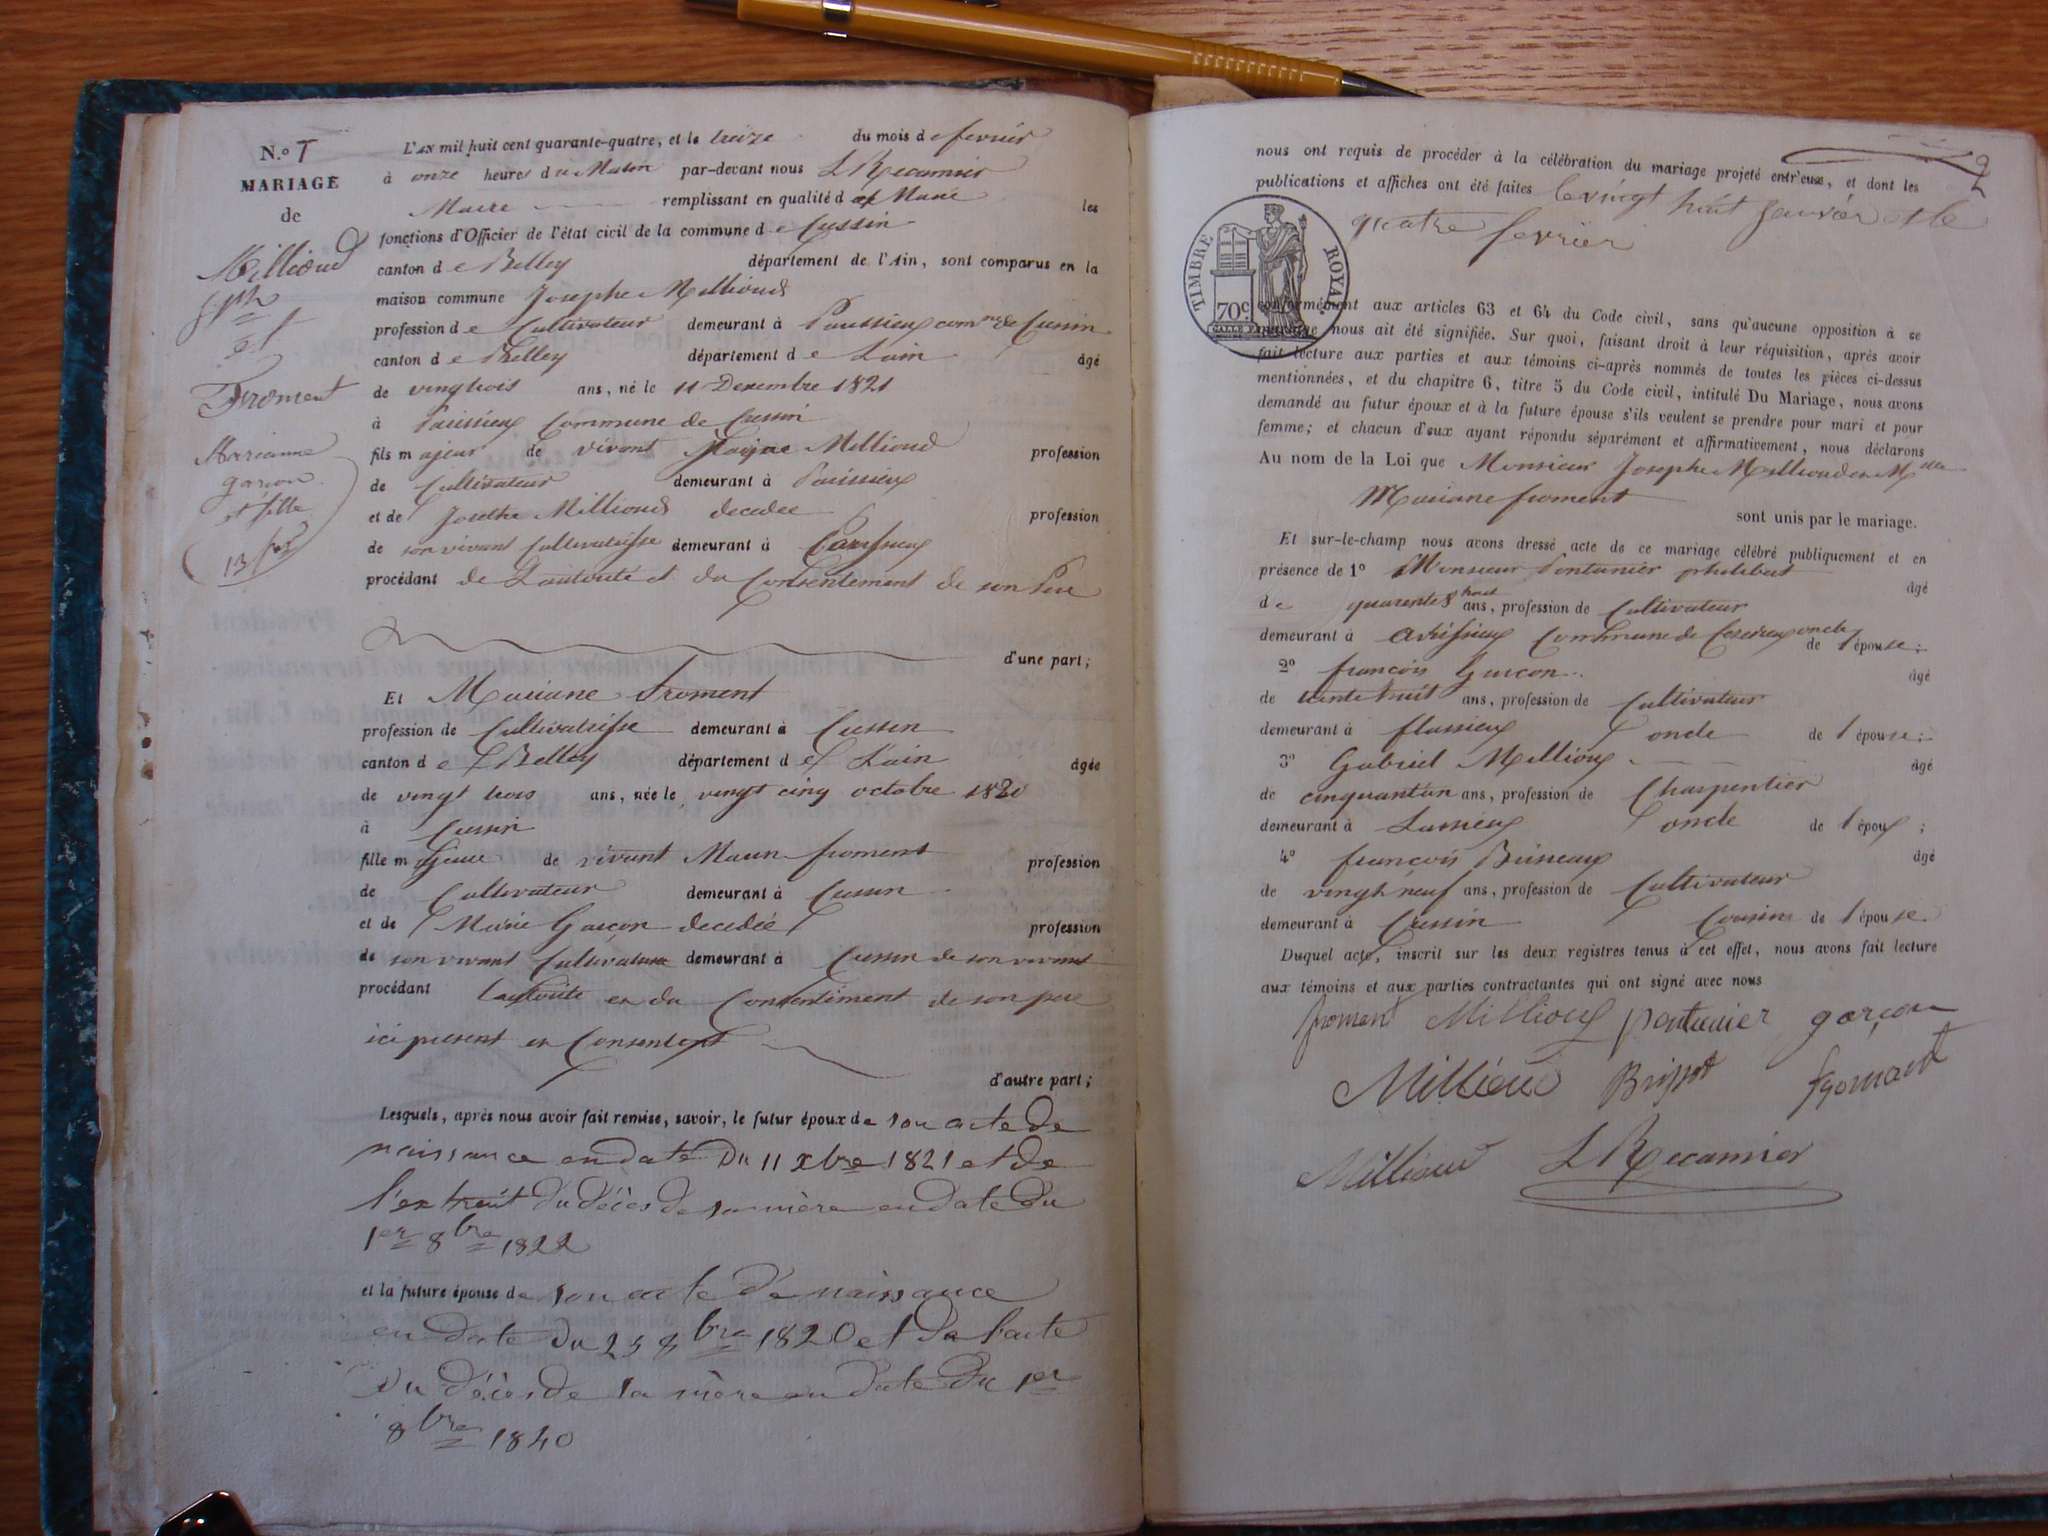 N.o
MARIAGE
de
Millioud
jph
et
Froment
Marianne
garcon
et fille
13 fer
L'AN mil huit cent quarante-quatre, et le treize du mois de fevrier
à onze heures du Matin par-devant nous L Recamier
Maire remplissant en qualité de Maire les
fonctions d'Officier de l'état civil de la commune de Cussin
canton de Belley département de l'Ain, sont comparus en la
maison commune Josephe Millioud
profession de Cultivateur demeurant à comne de Cussin
canton de Belley département de Lain âgé
de vingtrois ans, né le 11 Decembre 1821
à Commune de Cussin
fils majeur de vivant Millioud profession
de Cultivateur demeurant à
et de Josethe Millioud decedee profession
de son vivant Cultivatrisse demeurant à
procédant de Lautorité et du Consentement de son Pere
d'une part;
Et Mariane Froment
profession de Cultivatrisse demeurant à Cussin
canton de Belley département de Lain âgée
de vingt trois ans, née le vingt cinq octobre 1820
à Cussin
fille majeure de vivant froment profession
de Cultivateur demeurant à Cussin
et de Marie Garcon decedée profession
de son vivant Cultivatrice demeurant à Cussin de son vivant
procédant Lautorité et du Consentement de son pere
ici present et Consentent
d'autre part;
Lesquels, après nous avoir fait remise, savoir, le futur époux de son acte de
naissance en date du 11 xbre 1821 et de
l'extrait du décès de sa mère en date du
1er 8bre 1822
et la future épouse de son acte de naissance
en date du 25 8bre 1820 et de l'acte
du décès de sa mère en date du 1er
8bre 1840
2
nous ont requis de procéder à la célébration du mariage projeté entr'eux, et dont les
publications et affiches ont été faites le vingt huit janvier et le
quatre fevrier
TIMBRE ROYAL
70c
conformément aux articles 63 et 64 du Code civil, sans qu'aucune opposition à ce
mariage nous ait été signifiée. Sur quoi, faisant droit à leur réquisition, après avoir
fait lecture aux parties et aux témoins ci-après nommés de toutes les pièces ci-dessus
mentionnées, et du chapitre 6, titre 5 du Code civil, intitulé Du Mariage, nous avons
demandé au futur époux et à la future épouse s'ils veulent se prendre pour mari et pour
femme; et chacun d'eux ayant répondu séparément et affirmativement, nous déclarons
Au nom de la Loi que Monsieur Josephe Millioud et Mlle
Mariane froment
sont unis par le mariage.
Et sur-le-champ nous avons dressé acte de ce mariage célébré publiquement et en
présence de 1o Monsieur Pontanier philibert âgé
de quarente huit ans, profession de Cultivateur
demeurant à Commune de oncle de l'épouse;
2o francois Garcon âgé
de trente huit ans, profession de Cultivateur
demeurant à oncle de l'épouse;
3o Gabriel Millioux âgé
de cinquantun ans, profession de Charpentier
demeurant à oncle de l'époux;
4o francois âgé
de vingt neuf ans, profession de Cultivateur
demeurant à Cussin Cousin de l'épouse
Duquel acte, inscrit sur les deux registres tenus à cet effet, nous avons fait lecture
aux témoins et aux parties contractantes qui ont signé avec nous
froment Millioux pontanier garçon
Millioud fromant
Millioud L Recamier